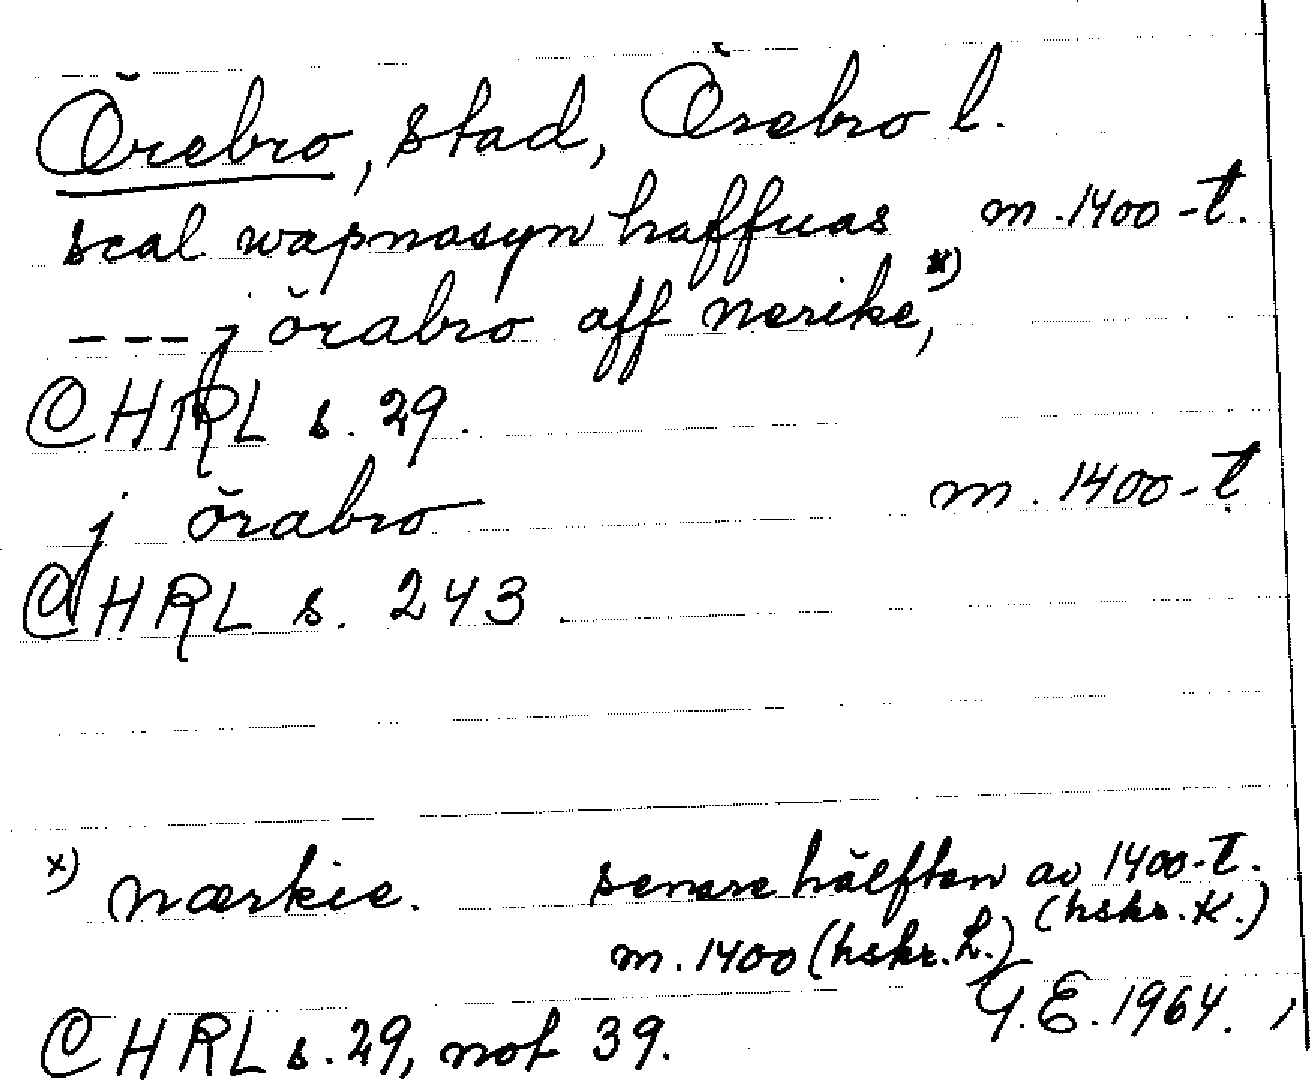 Örebro, stad, Örebro l.
scal wapnasyn haffuas m.1400-t.
---j örabro aff nerike, x)
CHRL s. 29.
j örabro m. 1400-t
CHRL s. 243
x) nærkie. senare hälften av 1400-t.
(hskr. K.)
m. 1400 (hskr. L.)
G.E. 1964.
CHRL s. 29, not 39.